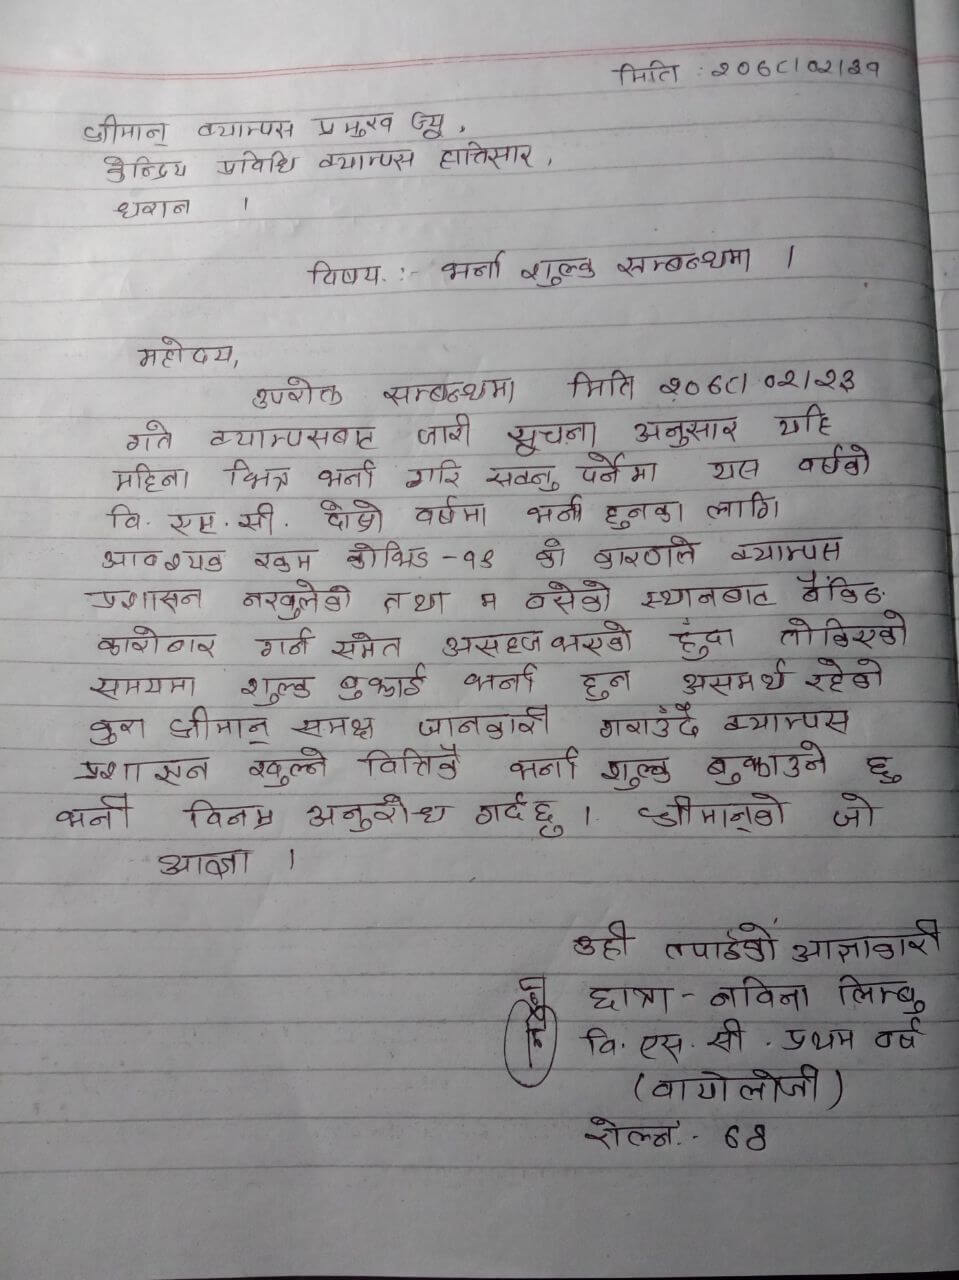 मिति : २०७८।०२।३१
श्रीमान् क्याम्पस प्रमुख ज्यू,
केन्द्रिय प्रविधि क्याम्पस हात्तिसार,
धरान ।
विषय :- भर्ना शुल्क सम्बन्धमा ।
महोदय,
उपरोक्त सम्बन्धमा मिति २०७८।०२।२३
गते क्याम्पसबाट जारी सूचना अनुसार यहि
महिना भित्र भर्ना गरि सक्नु पर्नेमा यस वर्षको
वि. एस. सी. दोस्रो वर्षमा भर्ना हुनका लागि
आवश्यक रकम कोभिड -१९ को कारणले क्याम्पस
प्रशासन नखुलेको तथा म बसेको स्थानबाट बैंकिङ
कारोबार गर्न समेत असहज भएको हुंदा तोकिएको
समयमा शुल्क बुझाई भर्ना हुन असमर्थ रहेको
कुरा श्रीमान् समक्ष जानकारी गराउँदै क्याम्पस
प्रशासन खुल्ने वित्तिकै भर्ना शुल्क बुझाउने छु
भनी विनम्र अनुरोध गर्दछु । श्रीमान्को जो
आज्ञा ।
उही तपाईको आज्ञाकारी
छात्रा - नविना लिम्बु
वि. एस. सी. प्रथम वर्ष
(बायोलोजी)
रोल नं. - ६४